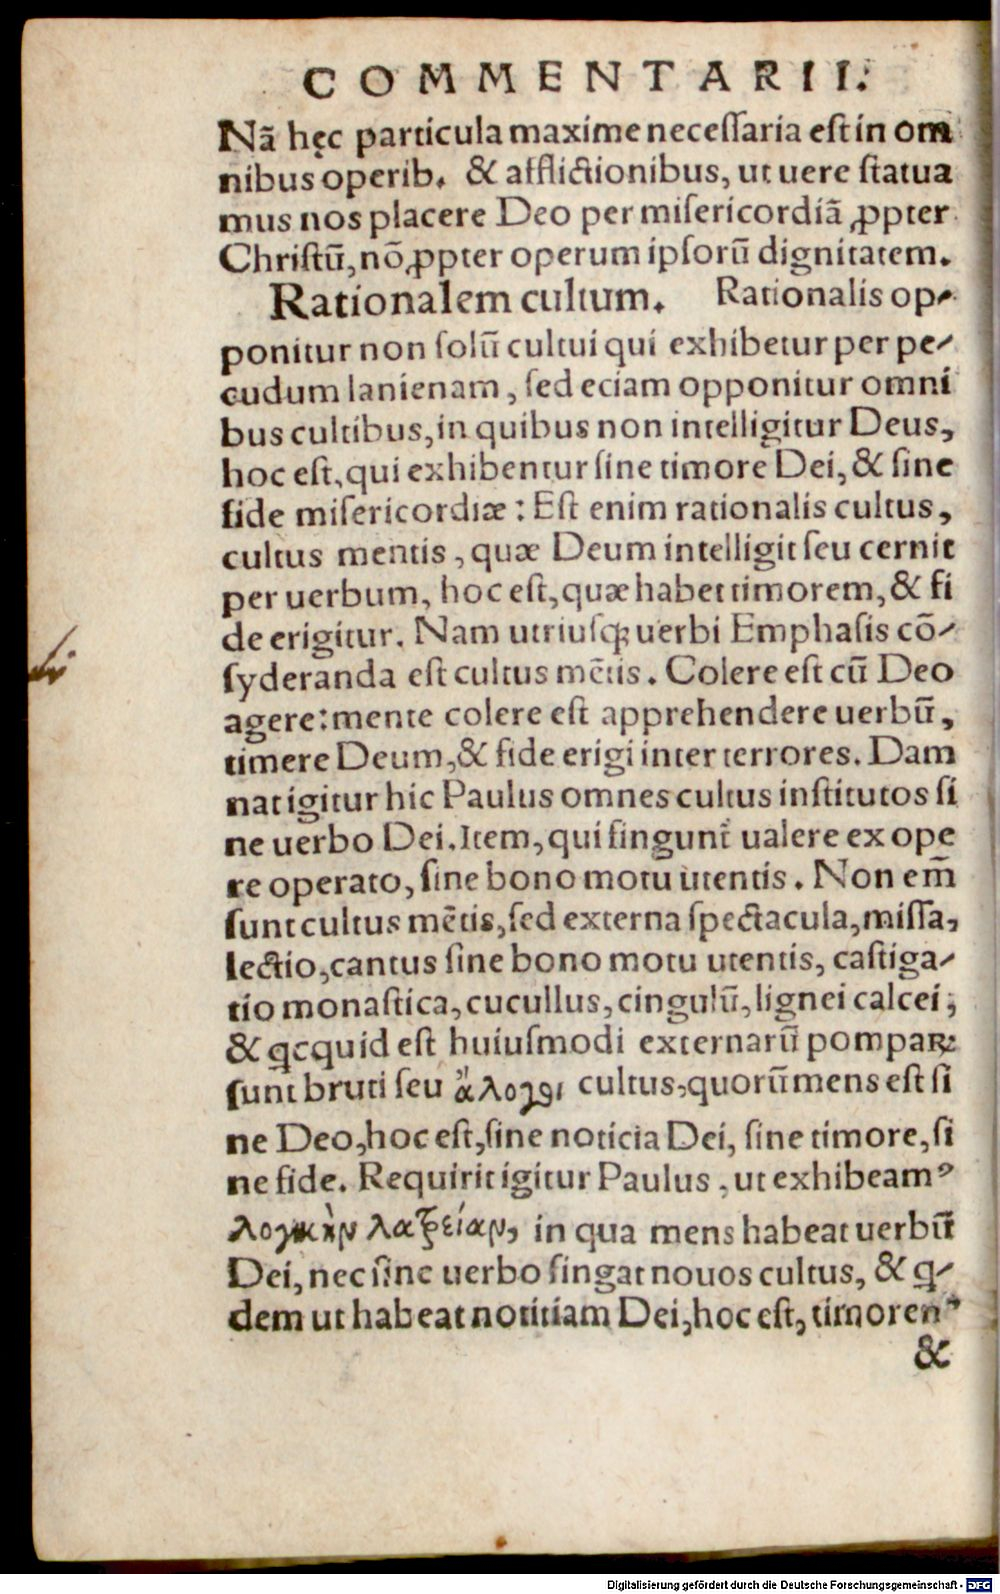 COMMENTARII.
Nã hęc particula maxime necessaria est in om
nibus operib. & afflictionibus, ut uere statua
mus nos placere Deo per misericordiã ꝓpter
Christũ, nõ ꝓpter operum ipsorũ dignitatem.
Rationalem cultum. Rationalis op-
ponitur non solũ cultui qui exhibetur per pe-
cudum lanienam, sed eciam opponitur omni
bus cultibus, in quibus non intelligitur Deus,
hoc est, qui exhibentur sine timore Dei, & sine
fide misericordiæ: Est enim rationalis cultus,
cultus mentis, quæ Deum intelligit seu cernit
per uerbum, hoc est, quæ habet timorem, & fi
de erigitur. Nam utriusq; uerbi Emphasis cõ-
syderanda est cultus mẽtis. Colere est cũ Deo
agere: mente colere est apprehendere uerbũ,
timere Deum, & fide erigi inter terrores. Dam
nat igitur hic Paulus omnes cultus institutos si
ne uerbo Dei. Item, qui fingunt ualere ex ope
re operato, sine bono motu utentis. Non em̃
sunt cultus mẽtis, sed externa spectacula, missa,
lectio, cantus sine bono motu utentis, castiga-
tio monastica, cucullus, cingulũ, lignei calcei,
& qcquid est huiusmodi externarũ pompaꝝ:
sunt bruti seu ἄλογοι cultus, quorũ mens est si
ne Deo, hoc est, sine noticia Dei, sine timore, si
ne fide. Requirit igitur Paulus, ut exhibeamꝰ
λογικὴν λατρείαν, in qua mens habeat uerbũ
Dei, nec sine uerbo fingat nouos cultus, & q-
dem ut habeat notitiam Dei, hoc est, timorem
&
Digitalisierung gefördert durch die Deutsche Forschungsgemeinschaft - DFG